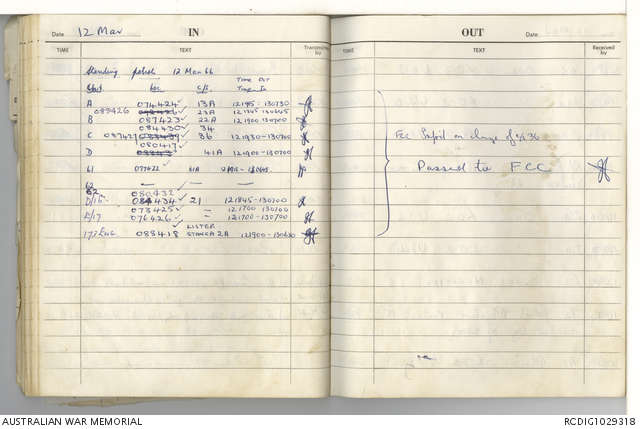 Date 12 Mar IN
TIME TEXT Transmitted by
Standing patrols 12 Mar 66
Unit Loc C/S Time Out
Time In
A 074424 13A 121915-130730
089426 23A 121845-130645
B 087423 22A 121900-130700
084430 34
C 087427 36 121930-130700
080417
D 41A 121900-130700
61 077422 61A
62 — — —
080432
D/16 084434 21 121845-130700
073425 " 121700 130700
E/17 076426 " 121700-130700
LISTER
173 ENG 085418 STANCA 2A 121900-130630
OUT Date
TIME TEXT Received by
FCC Info'd on change of c/s 36
Passed to FCC
AUSTRALIAN WAR MEMORIAL RCDIG1029318